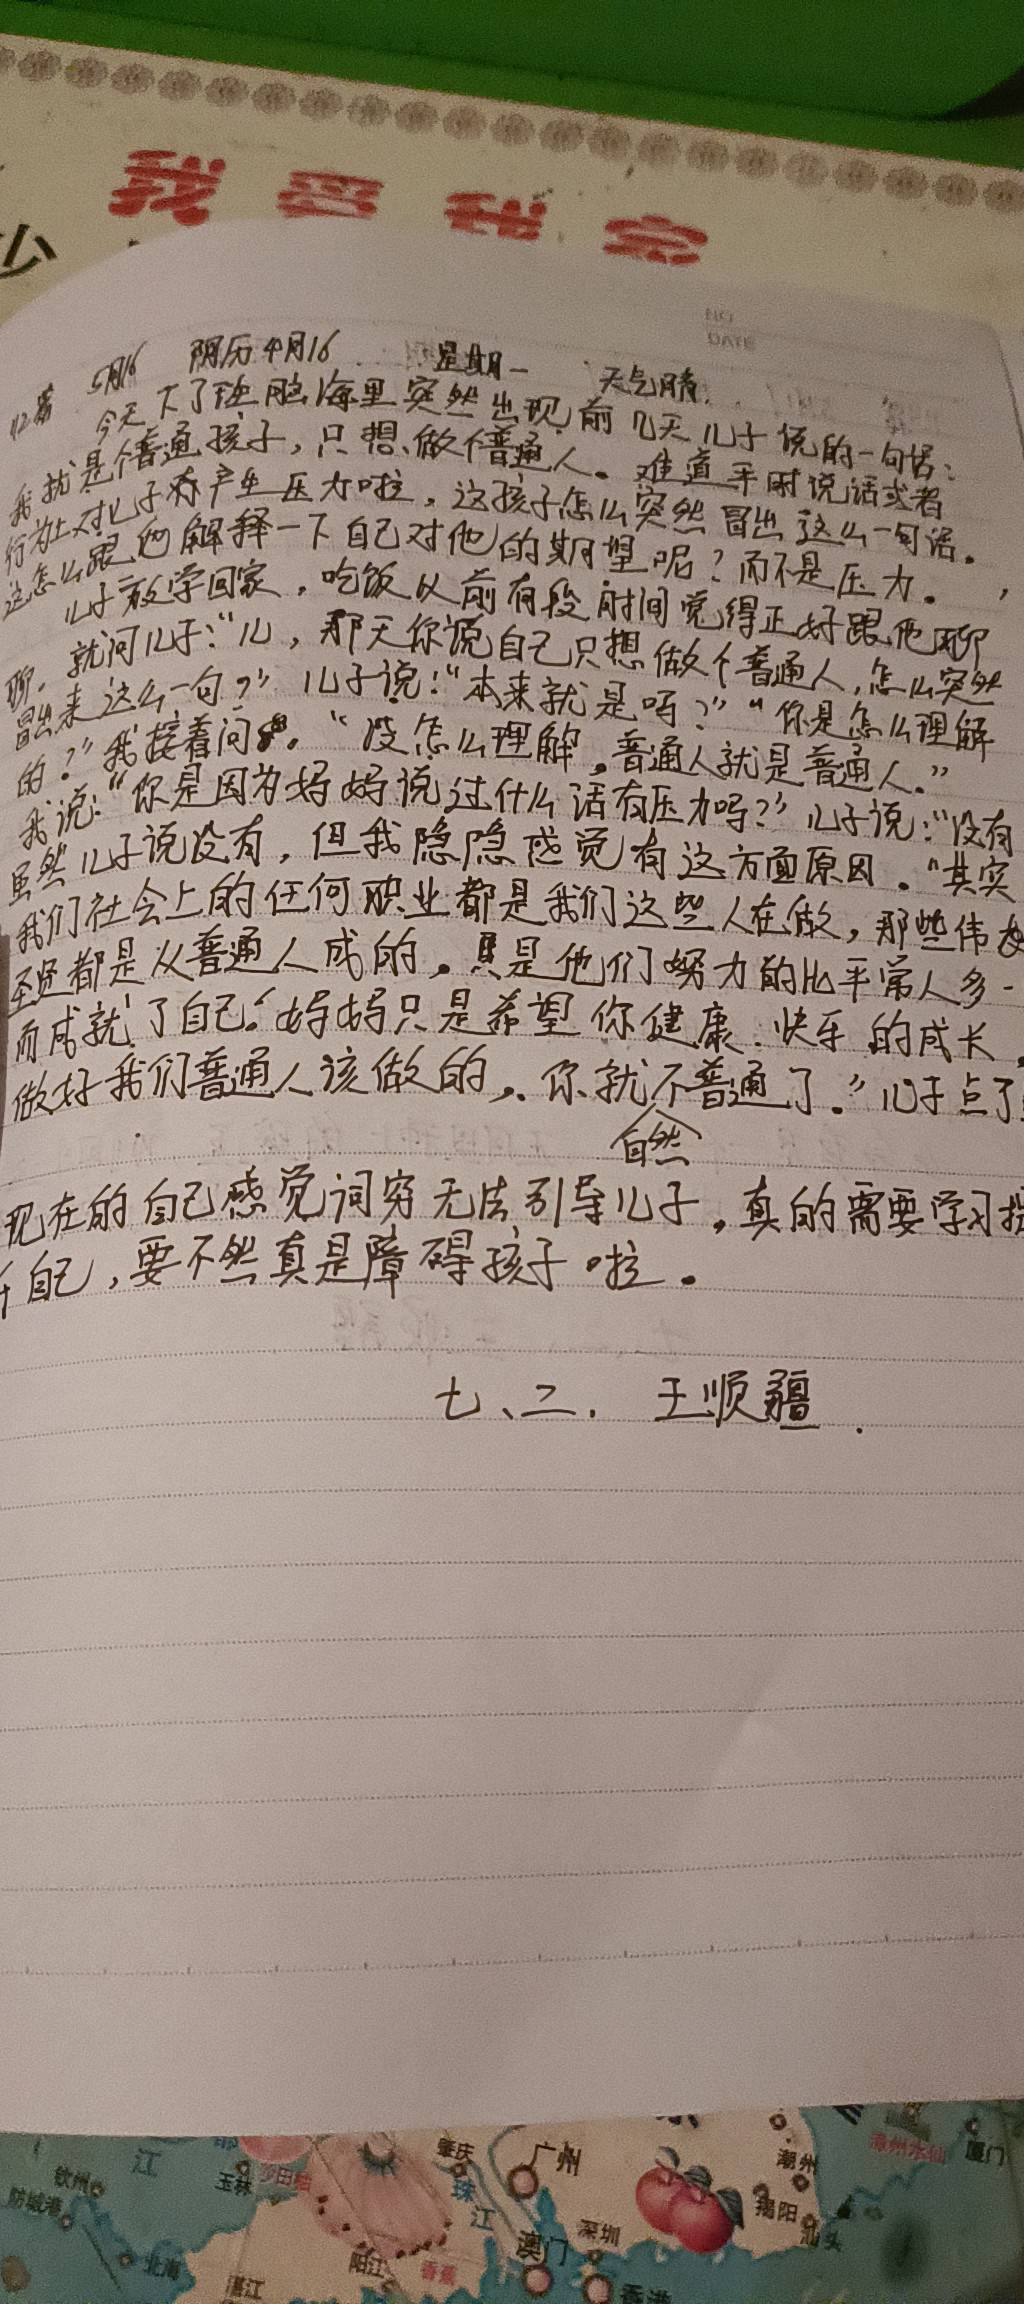 我爱我家
12篇 5月16 阴历4月16 星期一 天气晴
今天下了班脑海里突然出现前几天儿子说的一句话：
我就是个普通孩子，只想做个普通人。难道平时说话或者
行为上对儿子有产生压力啦，这孩子怎么突然冒出这么一句话。
这怎么跟他解释一下自己对他的期望呢？而不是压力。
儿子放学回家，吃饭以前有段时间觉得正好跟他聊
聊，就问儿子：“儿，那天你说自己只想做个普通人，怎么突然
冒出来这么一句？”儿子说：“本来就是吗？”“你是怎么理解
的？”我接着问。“没怎么理解，普通人就是普通人。”
我说：“你是因为妈妈说过什么话有压力吗？”儿子说：“没有
虽然儿子说没有，但我隐隐感觉有这方面原因。“其实
我们社会上的任何职业都是我们这些人在做，那些伟
圣贤都是从普通人成的，只是他们努力的比平常人多一
而成就了自己。妈妈只是希望你健康、快乐的成长，
做好我们普通人该做的，你就自然不普通了。”儿子点了
现在的自己感觉词穷无法引导儿子，真的需要学习
自己，要不然真是障碍孩子啦。
七、二．王顺疆
江
钦州
防城港
玉林
沙田柚
肇庆
珠江
广州
潮州
漳州水仙
厦门
揭阳
汕头
北海
湛江
阳江
香蕉
澳门
深圳
香港